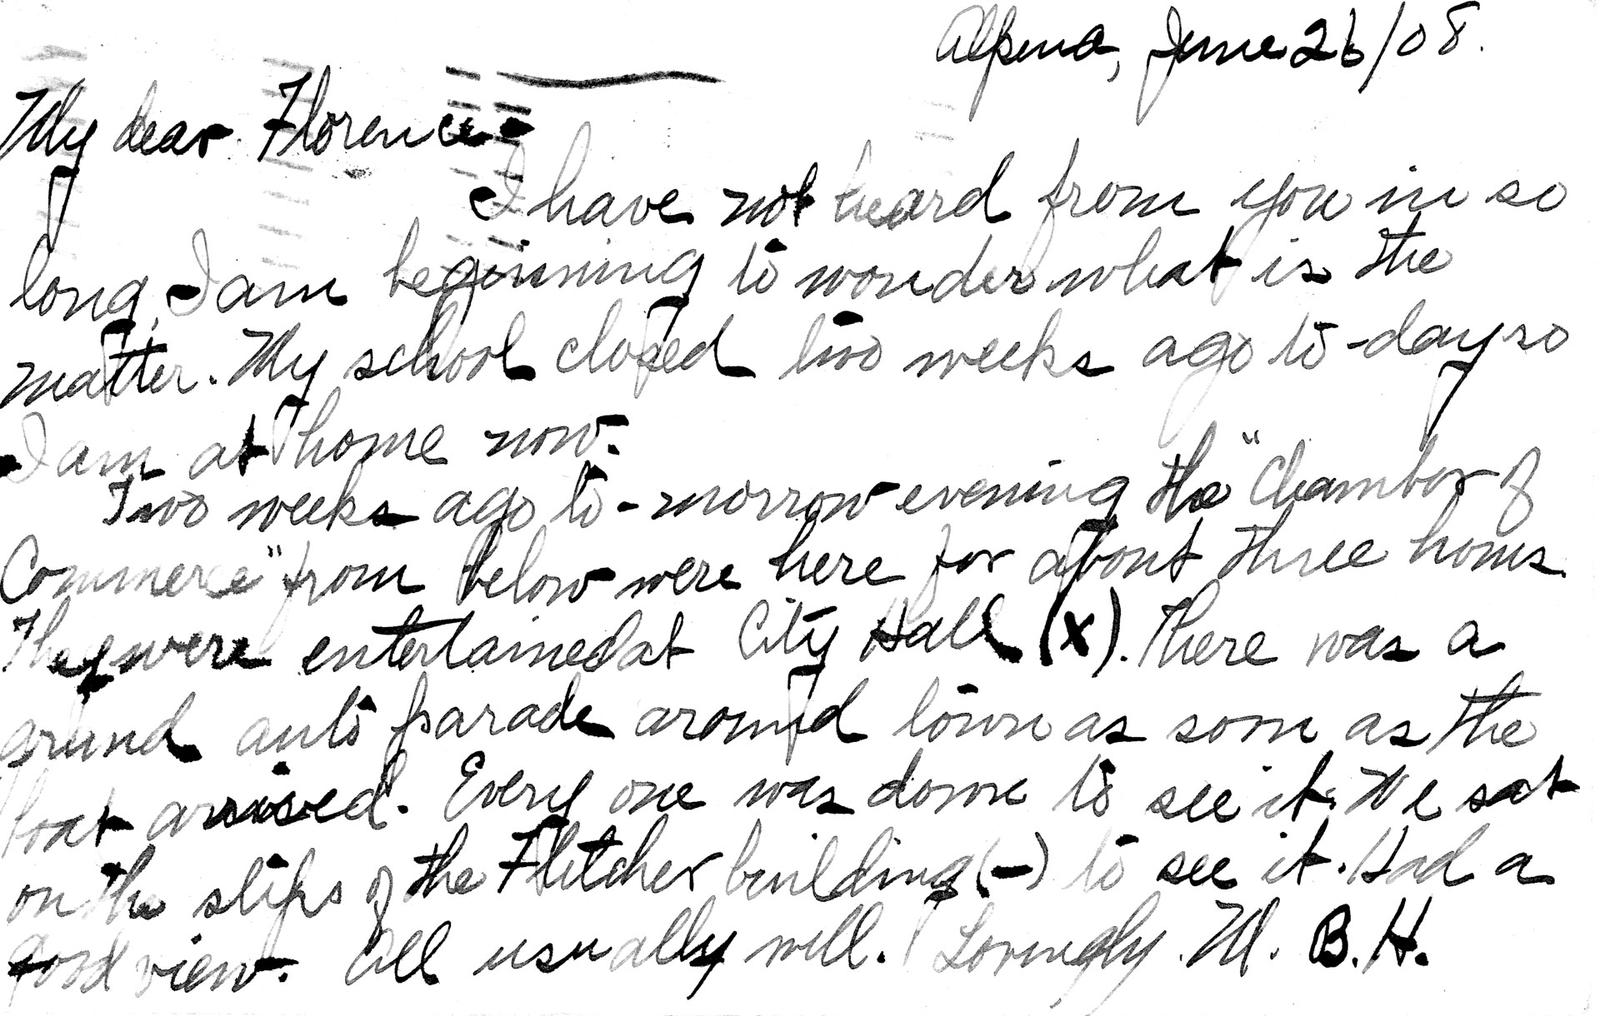 Alpena, June 26/08.
My dear Florence-
I have not heard from you in so
long, I am beginning to wonder what is the
matter. My school closed two weeks ago to-day so
I am at home now.
Two weeks ago to-morrow evening the "Chamber of
Commerce" from below were here for about three hours.
They were entertained at City Hall (x). There was a
grand auto parade around town as soon as the
boat arrived. Every one was down to see it. We sat
on the steps of the Fletcher building (-) to see it. Had a
good view. All usually well. Lovingly. M. B. H.